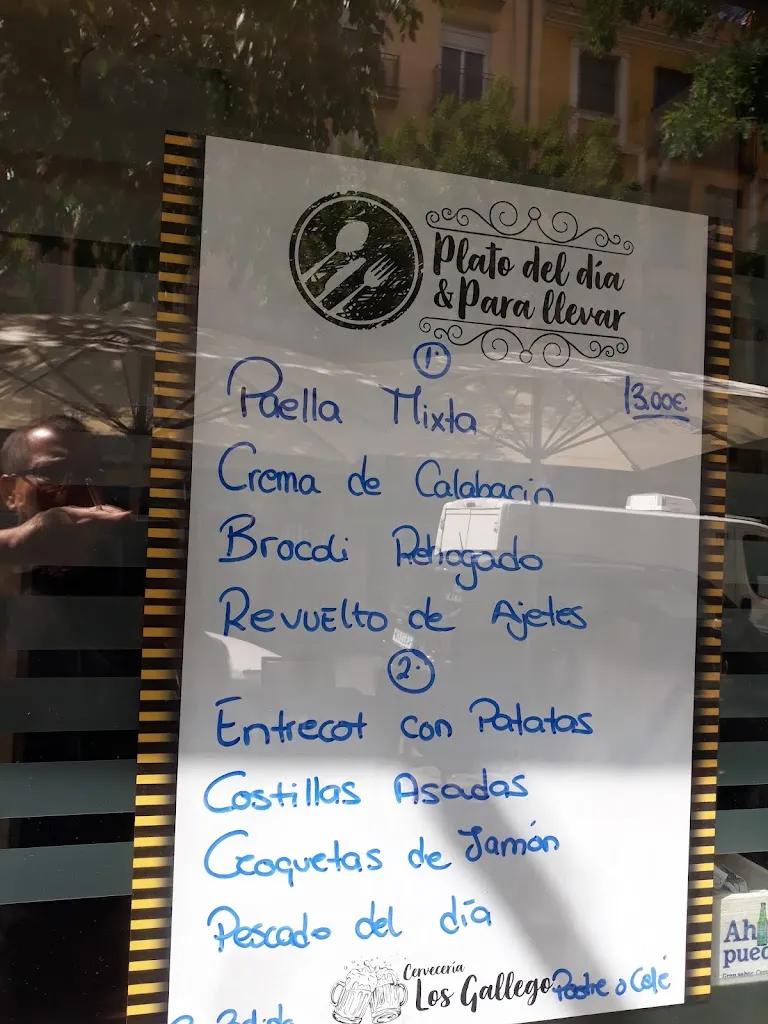 Plato del día
& Para llevar
1.
Paella Mixta 13.00€
Crema de Calabacin
Brocoli Rehogado
Revuelto de Ajetes
2.
Entrecot con Patatas
Costillas Asadas
Croquetas de Jamón
Pescado del día
Cervecería
Los Gallego
Postre o Café
Bebida
Ah
pued